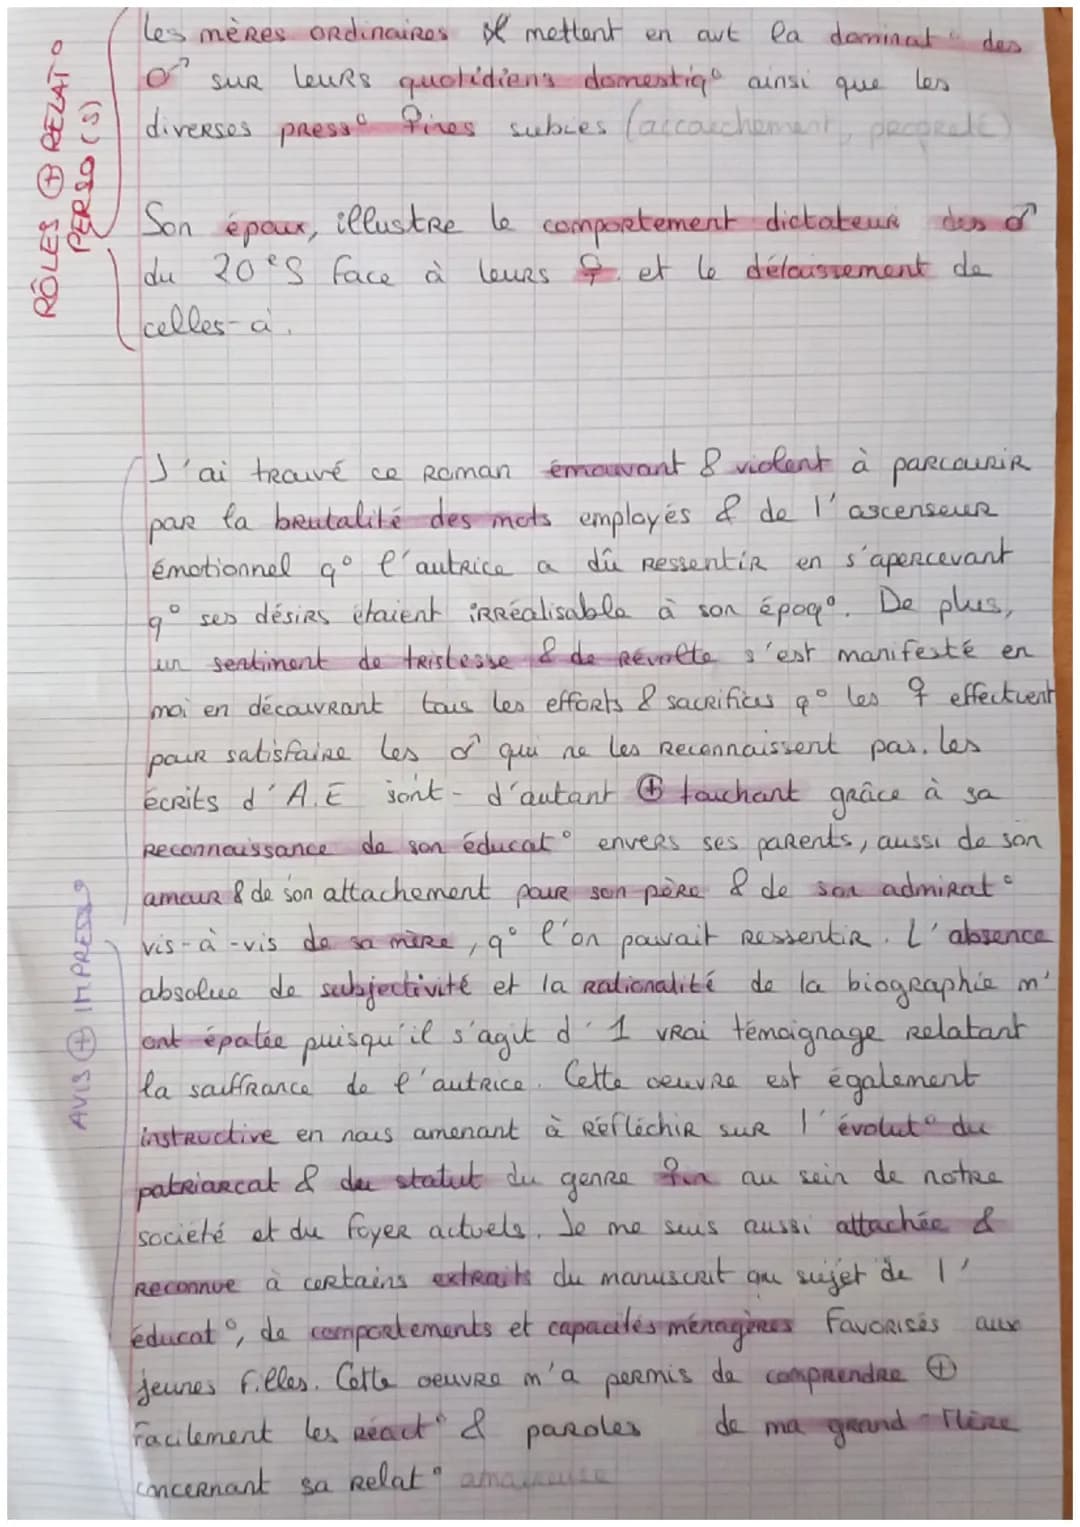 RÔLES ⊕ RELAT°
PERSO(S)
Les mères ordinaires mettent en avt la dominat° des
♂ sur leurs quotidiens domestiq° ainsi que les
diverses press° ♀ines subies (accouchement, propreté)
Son époux, illustre le comportement dictateur des ♂
du 20°S face à leurs ♀ et le délaissement de
celles-ci.
AVIS ⊕ IMPRESS°
J'ai trouvé ce roman émouvant & violent à parcourir
par la brutalité des mots employés & de l'ascenseur
émotionnel q° l'autrice a dû ressentir en s'apercevant
q° ses désirs étaient irréalisable à son époq°. De plus,
un sentiment de tristesse & de révolte s'est manifesté en
moi en découvrant tous les efforts & sacrifices q° les ♀ effectuent
pour satisfaire les ♂ qui ne les reconnaissent pas. Les
écrits d'A.E sont d'autant ⊕ touchant grâce à sa
reconnaissance de son éducat° envers ses parents, aussi de son
amour & de son attachement pour son père & de son admirat°
vis-à-vis de sa mère, q° l'on pouvait ressentir. L'absence
absolue de subjectivité et la rationalité de la biographie m'
ont épatée puisqu'il s'agit d'1 vrai témoignage relatant
la souffrance de l'autrice. Cette oeuvre est également
instructive en nous amenant à réfléchir sur l'évolut° du
patriarcat & du statut du genre ♀in au sein de notre
société et du foyer actuels. Je me suis aussi attachée &
reconnue à certains extraits du manuscrit au sujet de l'
éducat°, de comportements et capacités ménagères favorisés aux
jeunes filles. Cette oeuvre m'a permis de comprendre ⊕
facilement les réact° & paroles de ma grand-Mère
concernant sa relat° amoureuse